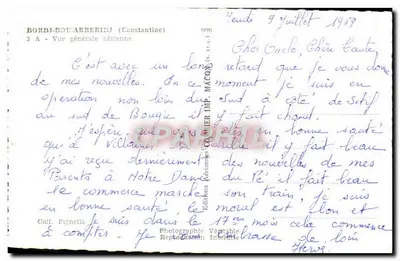 BORDJ-BOU-ARRERIDJ (Constantine)
3 A - Vue générale aérienne
Jeudi 9 Juillet 1959
Cher Oncle, Chère Tante,
C'est avec un bon retard que je vous donne
de mes nouvelles. En ce moment je suis en
operation non loin du Sud à côté de Setif
au sud de Bougie il y fait chaud.
J'espère que vous en bonne santé
qu'à Villa il y fait beau
j'ai reçu dernièrement des nouvelles de mes
Parents à Notre Dame du Pé il fait beau
le commerce marche son train, je suis
en bonne santé le moral est bon et
je suis dans le 17ème mois cela commence
à compter. Je vous embrasse de loin
Hervé
Coll. Pignella
Photographie Véritable
Reproduction Interdite
Editions Photo COMBIER IMP. MACON
CPAPHIL